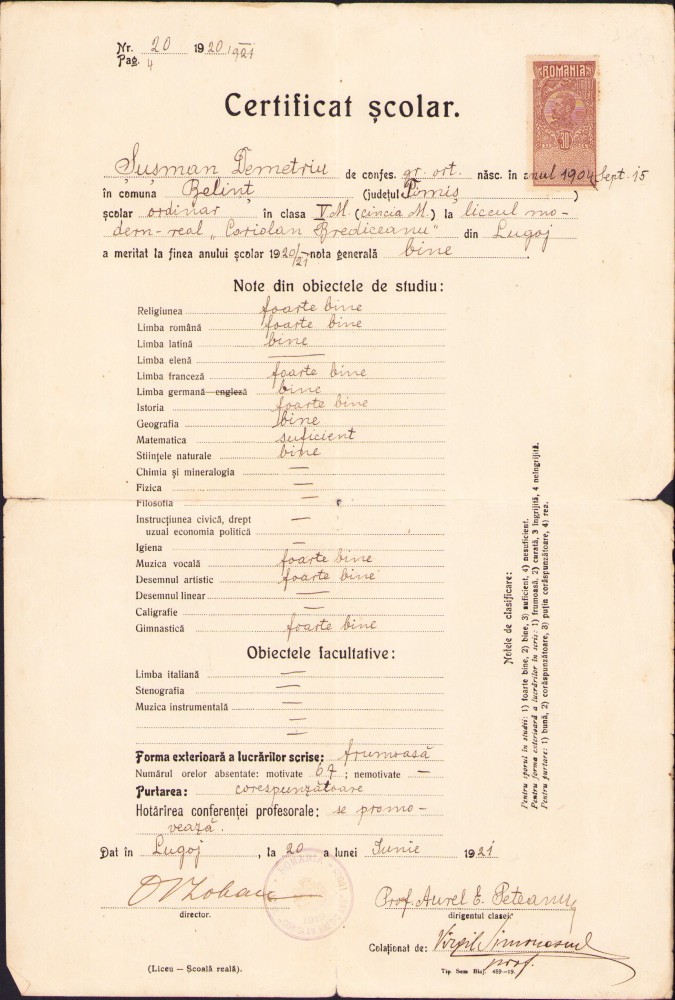 Nr. 20 1920/1921
Pag. 4
ROMANIA
Certificat școlar.
Sușman Demetriu de confes. gr. ort. născ. în anul 1904 Sept. 15
în comuna Belinț (județul Timiș)
școlar ordinar în clasa V M. (cincia M.) la liceul mo-
dern-real „Coriolan Brediceanu" din Lugoj
a meritat la finea anului școlar 1920/21 nota generală bine
Note din obiectele de studiu:
Religiunea foarte bine
Limba română foarte bine
Limba latină bine
Limba elenă —
Limba franceză foarte bine
Limba germană engleză bine
Istoria foarte bine
Geografia bine
Matematica suficient
Stiințele naturale bine
Chimia și mineralogia —
Fizica —
Filosofia —
Instrucțiunea civică, drept
uzual economia politică —
Igiena —
Muzica vocală foarte bine
Desemnul artistic foarte bine
Desemnul linear —
Caligrafie —
Gimnastică foarte bine
Obiectele facultative:
Limba italiană —
Stenografia —
Muzica instrumentală —
—
—
Forma exterioară a lucrărilor scrise: frumoasă
Numărul orelor absentate: motivate 64; nemotivate —
Purtarea: corespunzătoare
Hotărirea conferenței profesorale: se promo-
vează.
Dat în Lugoj, la 20 a lunei Iunie 1921
director.
Prof. Aurel E. Peteanu
dirigentul clasei
Colaționat de: Virgil Simonescu
prof.
(Liceu — Școală reală).
Tip. Sem Biaj. 459—19.
Notele de clasificare:
Pentru sporul in studii: 1) foarte bine, 2) bine, 3) suficient, 4) nesuficient.
Pentru forma exterioară a lucrărilor in scris: 1) frumoasă, 2) curată, 3 îngrijită, 4 neîngrijită.
Pentru purtare: 1) bună, 2) corăspunzătoare, 3) puțin corăspunzătoare, 4) rea.